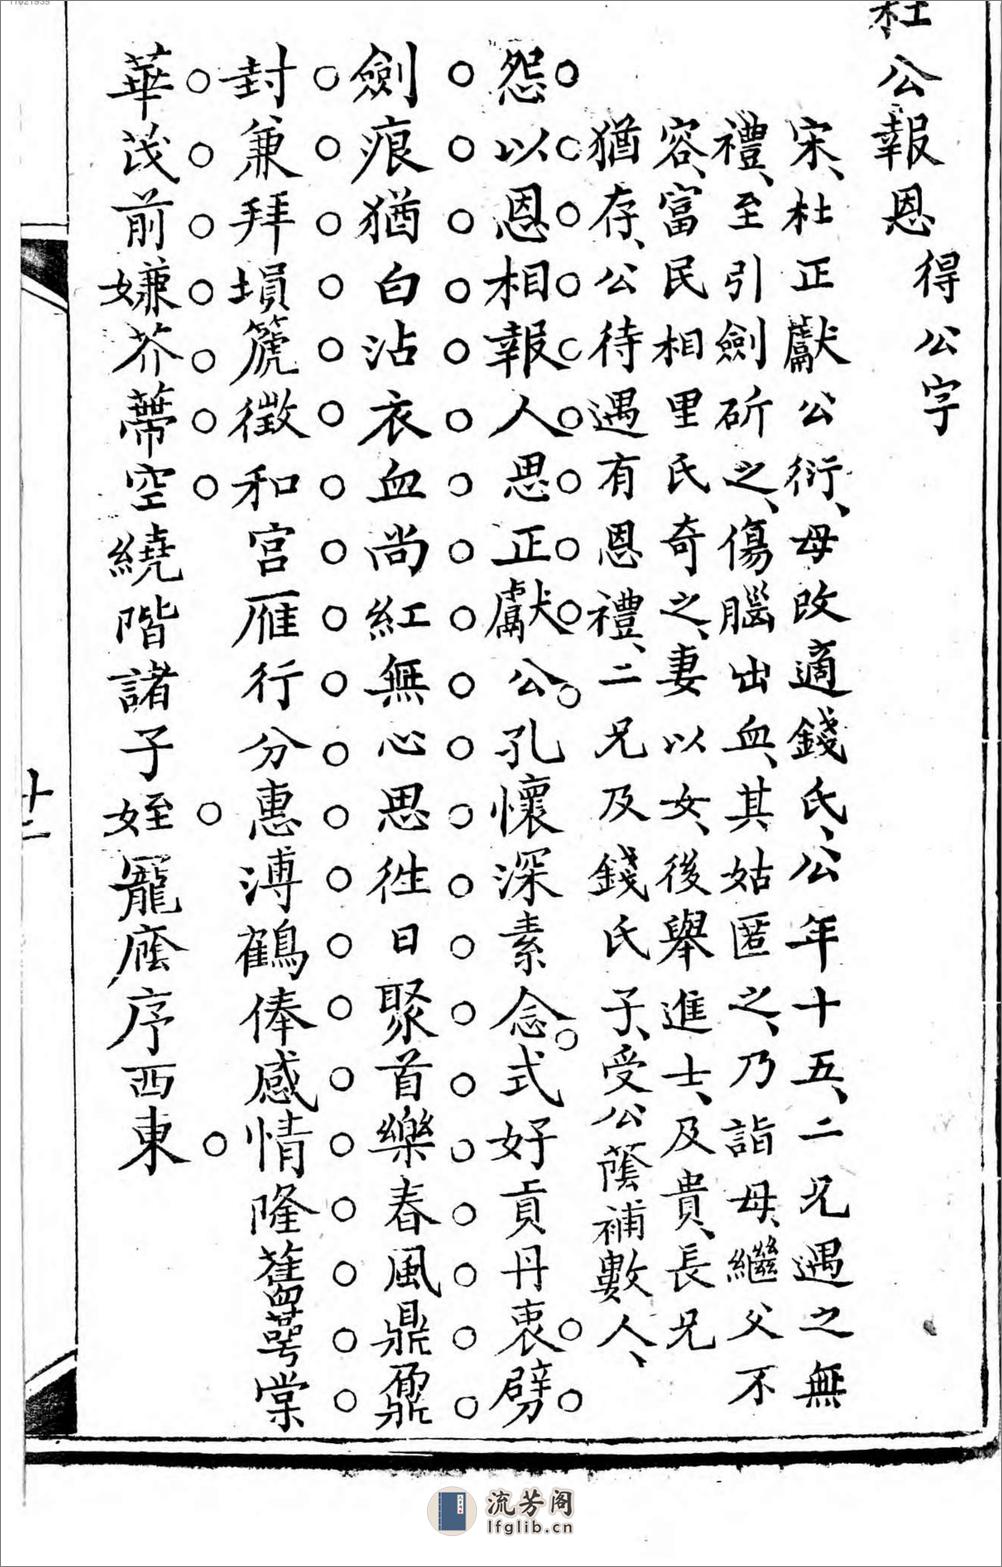 杜公報恩 得公字
宋、杜正獻公衍、母改適錢氏、公年十五、二兄遇之無
禮、至引劍斫之、傷腦出血、其姑匿之、乃詣母、繼父不
容、富民相里氏奇之、妻以女、後舉進士、及貴、長兄
猶存、公待遇有恩禮、二兄及錢氏子、受公蔭補數人、
怨以恩相報人思正獻公孔懷深素念式好貢丹衷劈
劍痕猶白沾衣血尚紅無心思徃日聚首樂春風鼎鼐
封兼拜壎篪徵和宮雁行分惠溥鶴俸感情隆舊萼棠
華茂前嫌芥蔕空繞階諸子姪寵廕序西東
十二
流芳阁
lfglib.cn